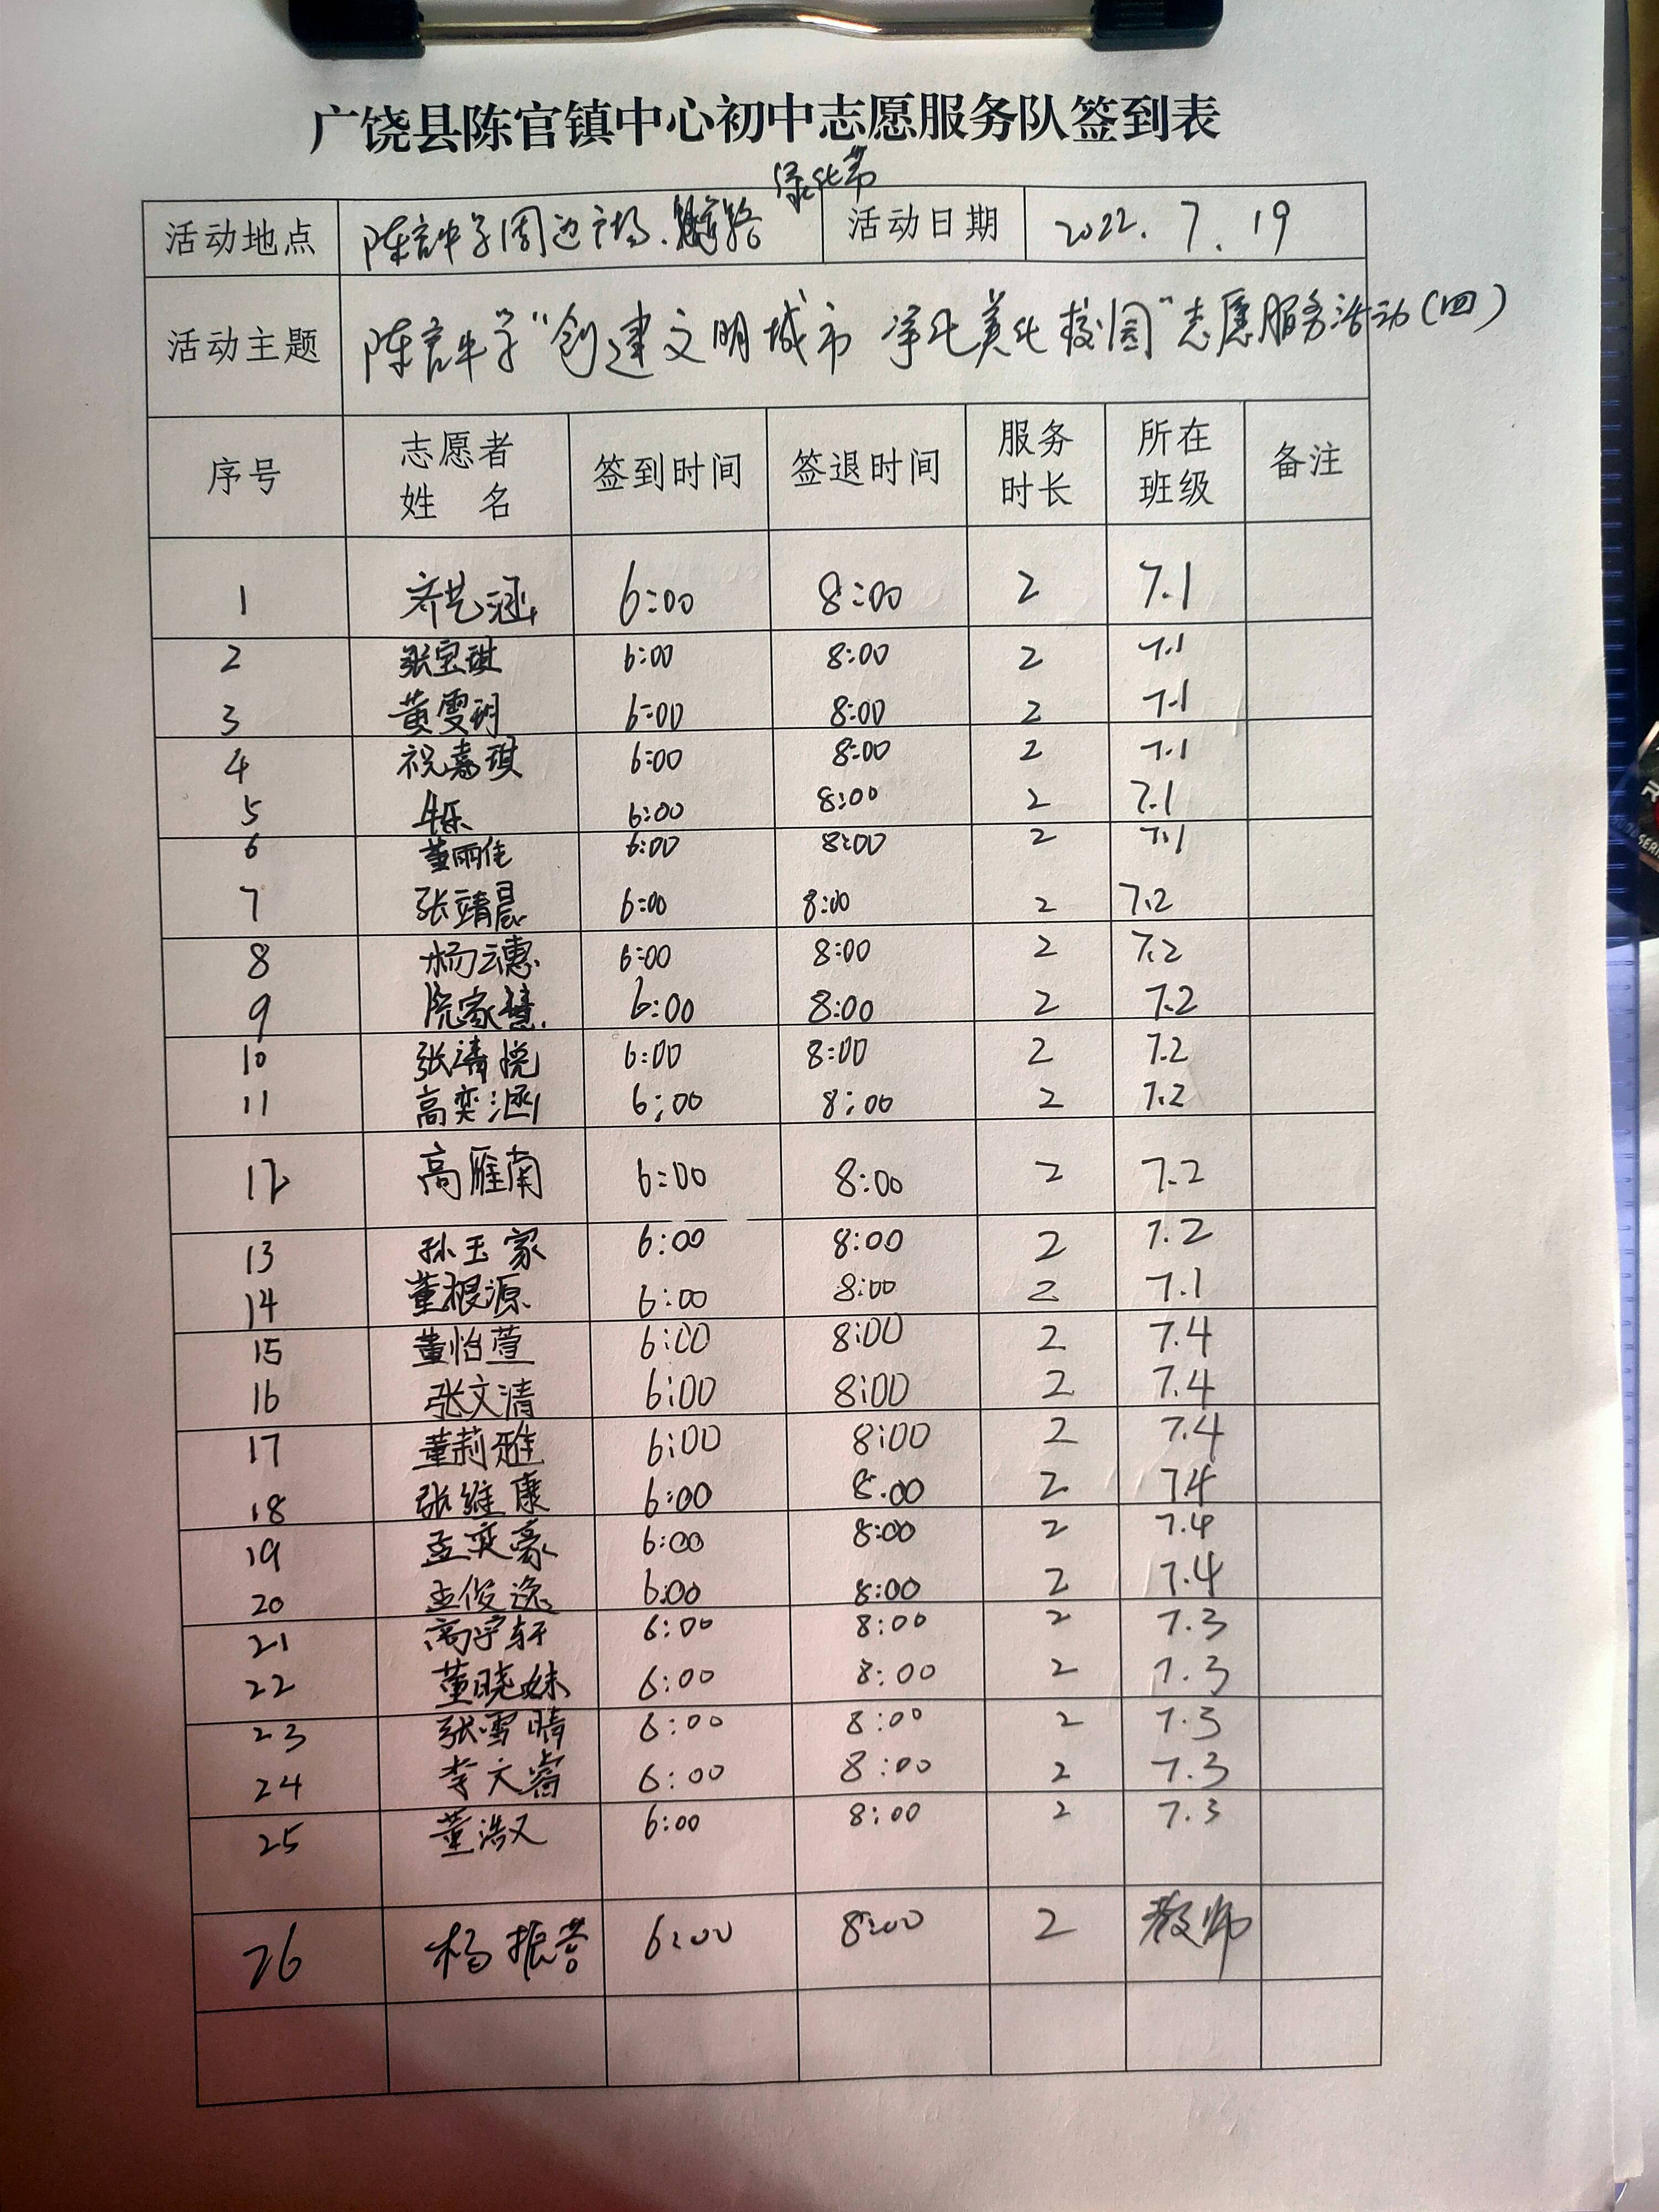 广饶县陈官镇中心初中志愿服务队签到表
绿化带
活动地点 陈官中学周边广场、道路 活动日期 2022.7.19
活动主题 陈官中学“创建文明城市 净化美化校园”志愿服务活动(四)
序号 志愿者姓名 签到时间 签退时间 服务时长 所在班级 备注
1 齐艺涵 6:00 8:00 2 7.1
2 张宝琪 6:00 8:00 2 7.1
3 黄雯玥 6:00 8:00 2 7.1
4 祝嘉琪 6:00 8:00 2 7.1
5 牛乐 6:00 8:00 2 7.1
6 董丽佳 6:00 8:00 2 7.1
7 张靖晨 6:00 8:00 2 7.2
8 杨云惠 6:00 8:00 2 7.2
9 家慧 6:00 8:00 2 7.2
10 张清悦 6:00 8:00 2 7.2
11 高奕涵 6:00 8:00 2 7.2
12 高雁南 6:00 8:00 2 7.2
13 孙玉家 6:00 8:00 2 7.2
14 董根源 6:00 8:00 2 7.1
15 董怡萱 6:00 8:00 2 7.4
16 张文清 6:00 8:00 2 7.4
17 董莉雅 6:00 8:00 2 7.4
18 张维康 6:00 8:00 2 7.4
19 孟奕豪 6:00 8:00 2 7.4
20 王俊逸 6:00 8:00 2 7.4
21 高宇轩 6:00 8:00 2 7.3
22 董晓妹 6:00 8:00 2 7.3
23 张雪晴 6:00 8:00 2 7.3
24 李文睿 6:00 8:00 2 7.3
25 董浩又 6:00 8:00 2 7.3
26 杨振营 6:00 8:00 2 教师